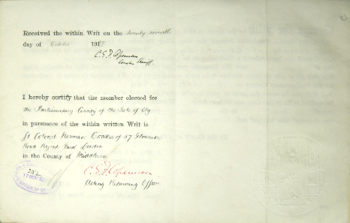 Received the within Writ on the twenty seventh
day of October 191
I hereby certify that the member elected for
the Parliamentary County of the Isle of Ely
in pursuance of the within written Writ is
Lt Colonel Norman Coates of 57 Gloucester
Road Regents Park London
in the County of Middlesex
Acting Returning Officer